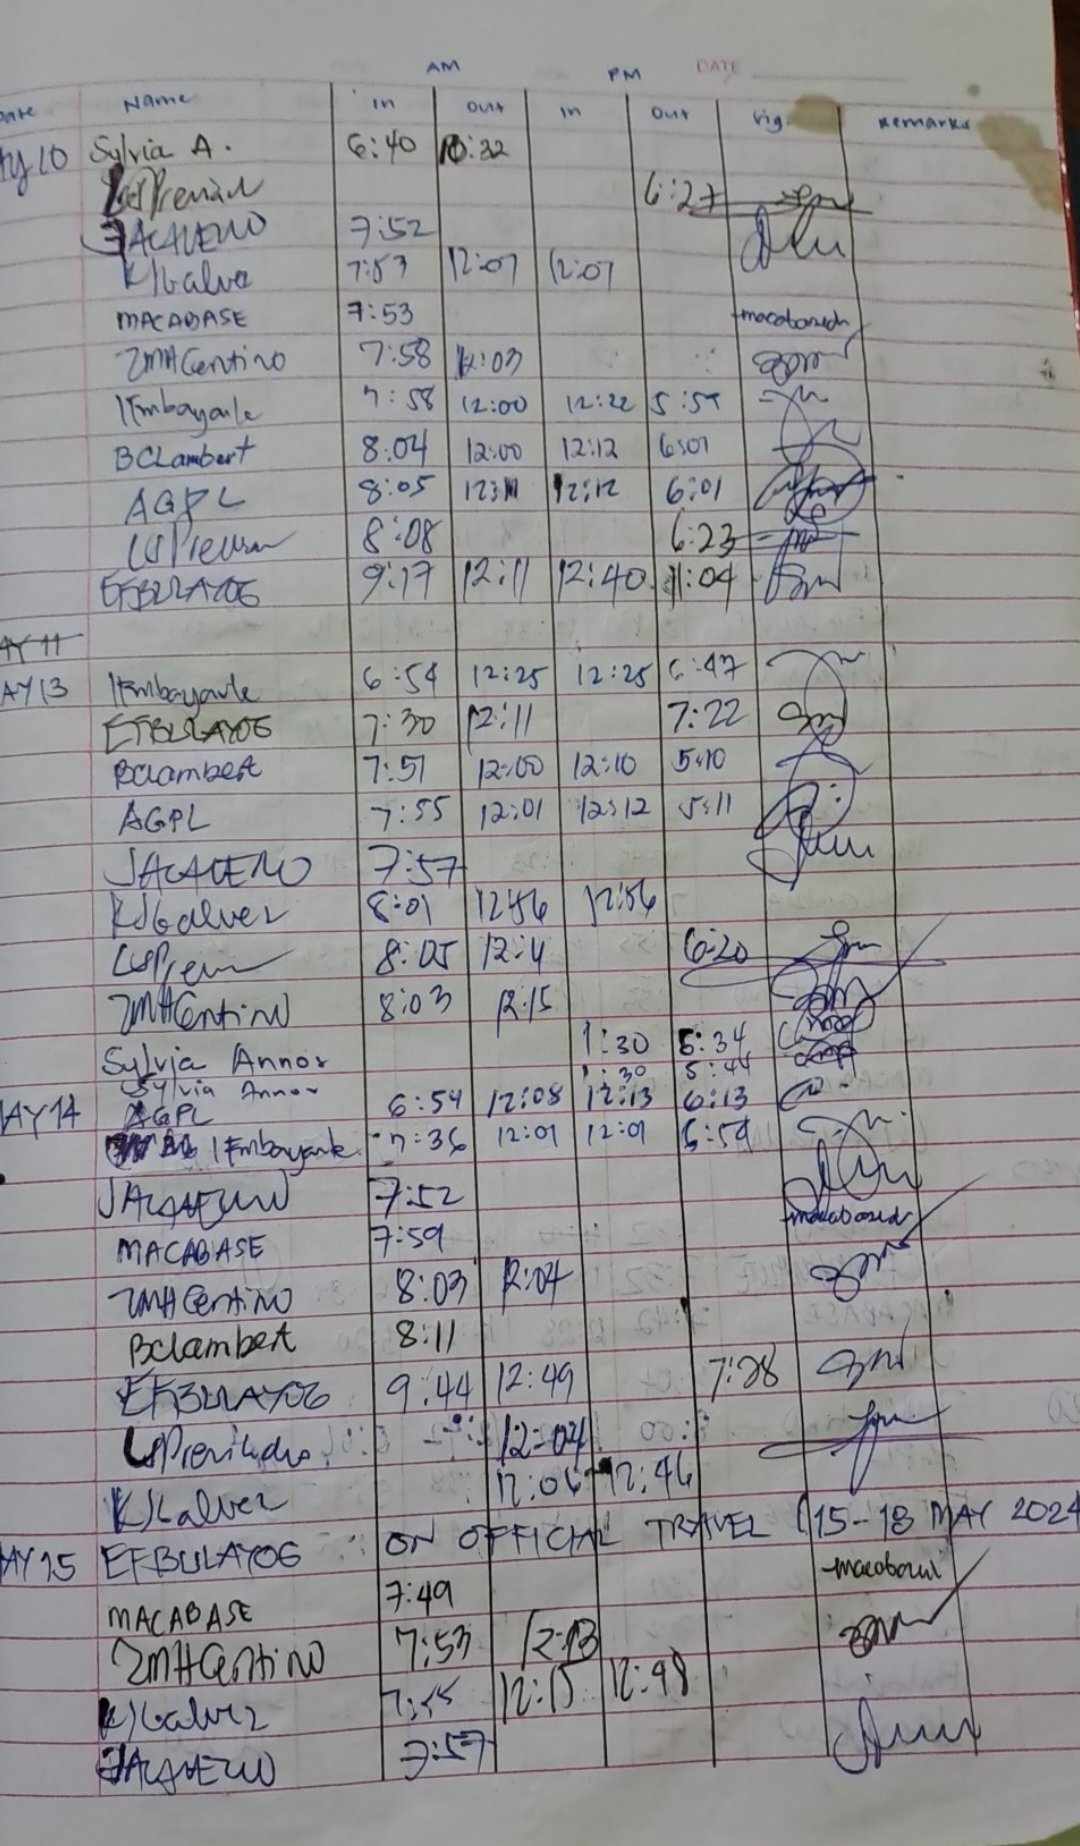 AM PM DATE
Name In Out In Out Sig. Remarks
10 Sylvia A. 6:40 10:32
6:27
7:52
KJGalvez 7:53 12:07 12:07
MACABASE 7:53 macabased
ZMHCentino 7:58 12:03
IFmbayarte 7:58 12:00 12:22 5:59
BCLambert 8:04 12:00 12:12 6:01
AGPL 8:05 12:11 12:12 6:01
8:08 6:23
EFBULAYOG 9:17 12:11 12:40 11:04
AY 11
AY 13 6:54 12:25 12:25 6:47
EFBULAYOG 7:30 12:11 7:22
BCLambert 7:51 12:00 12:10 5:10
AGPL 7:55 12:01 12:12 5:11
7:57
KJGalvez 8:01 12:56 12:56
8:05 12:4 6:20
ZMHCentino 8:03 12:15
Sylvia Annor 1:30 5:34
Sylvia Annor 1:30 5:44
AY 14 AGPL 6:54 12:08 12:13 6:13
7:36 12:01 12:01 6:59
7:52
MACABASE 7:59 macabased
ZMHCentino 8:03 12:04
BCLambert 8:11
EFBULAYOG 9:44 12:49 7:28
12:04
KJGalvez 12:06 12:46
AY 15 EFBULAYOG ON OFFICIAL TRAVEL (15-18 MAY 2024
MACABASE 7:49
ZMHCentino 7:53 12:13
KJGalvez 7:55 12:15 12:48
7:57